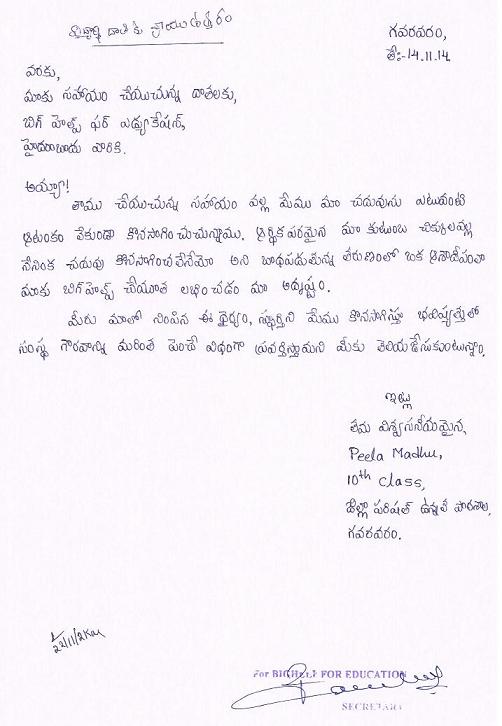 విద్యార్థి దాతకు వ్రాయు ఉత్తరం
గవరవరం,
తే:-14.11.14.
వరకు,
మాకు సహాయం చేయుచున్న దాతలకు,
బిగ్ హెల్ప్ ఫర్ ఎడ్యుకేషన్,
హైదరాబాదు వారికి.
అయ్యా!
తాము చేయుచున్న సహాయం వల్ల మేము మా చదువును ఎటువంటి
ఆటంకం లేకుండా కొనసాగించుచున్నాము. ఆర్థిక పరమైన మా కుటుంబ చిక్కులవల్ల
నేనింక చదువు కొనసాగించలేనేమో అని బాధపడుతున్న తరుణంలో ఒక ఆశాదీపంలా
మాకు బిగ్‌హెల్ప్ చేయూత లభించడం మా అదృష్టం.
మీరు మాలో నింపిన ఈ ధైర్యం, స్ఫూర్తిని మేము కొనసాగిస్తూ భవిష్యత్తులో
సంస్థ గౌరవాన్ని మరింత పెంచే విధంగా ప్రవర్తిస్తామని మీకు తెలియజేసుకుంటున్నాం.
ఇట్లు
తమ విశ్వసనీయమైన,
Peela Madhu,
10th Class,
జిల్లా పరిషత్ ఉన్నత పాఠశాల,
గవరవరం.
For BIGHELP FOR EDUCATION
SECRETARY